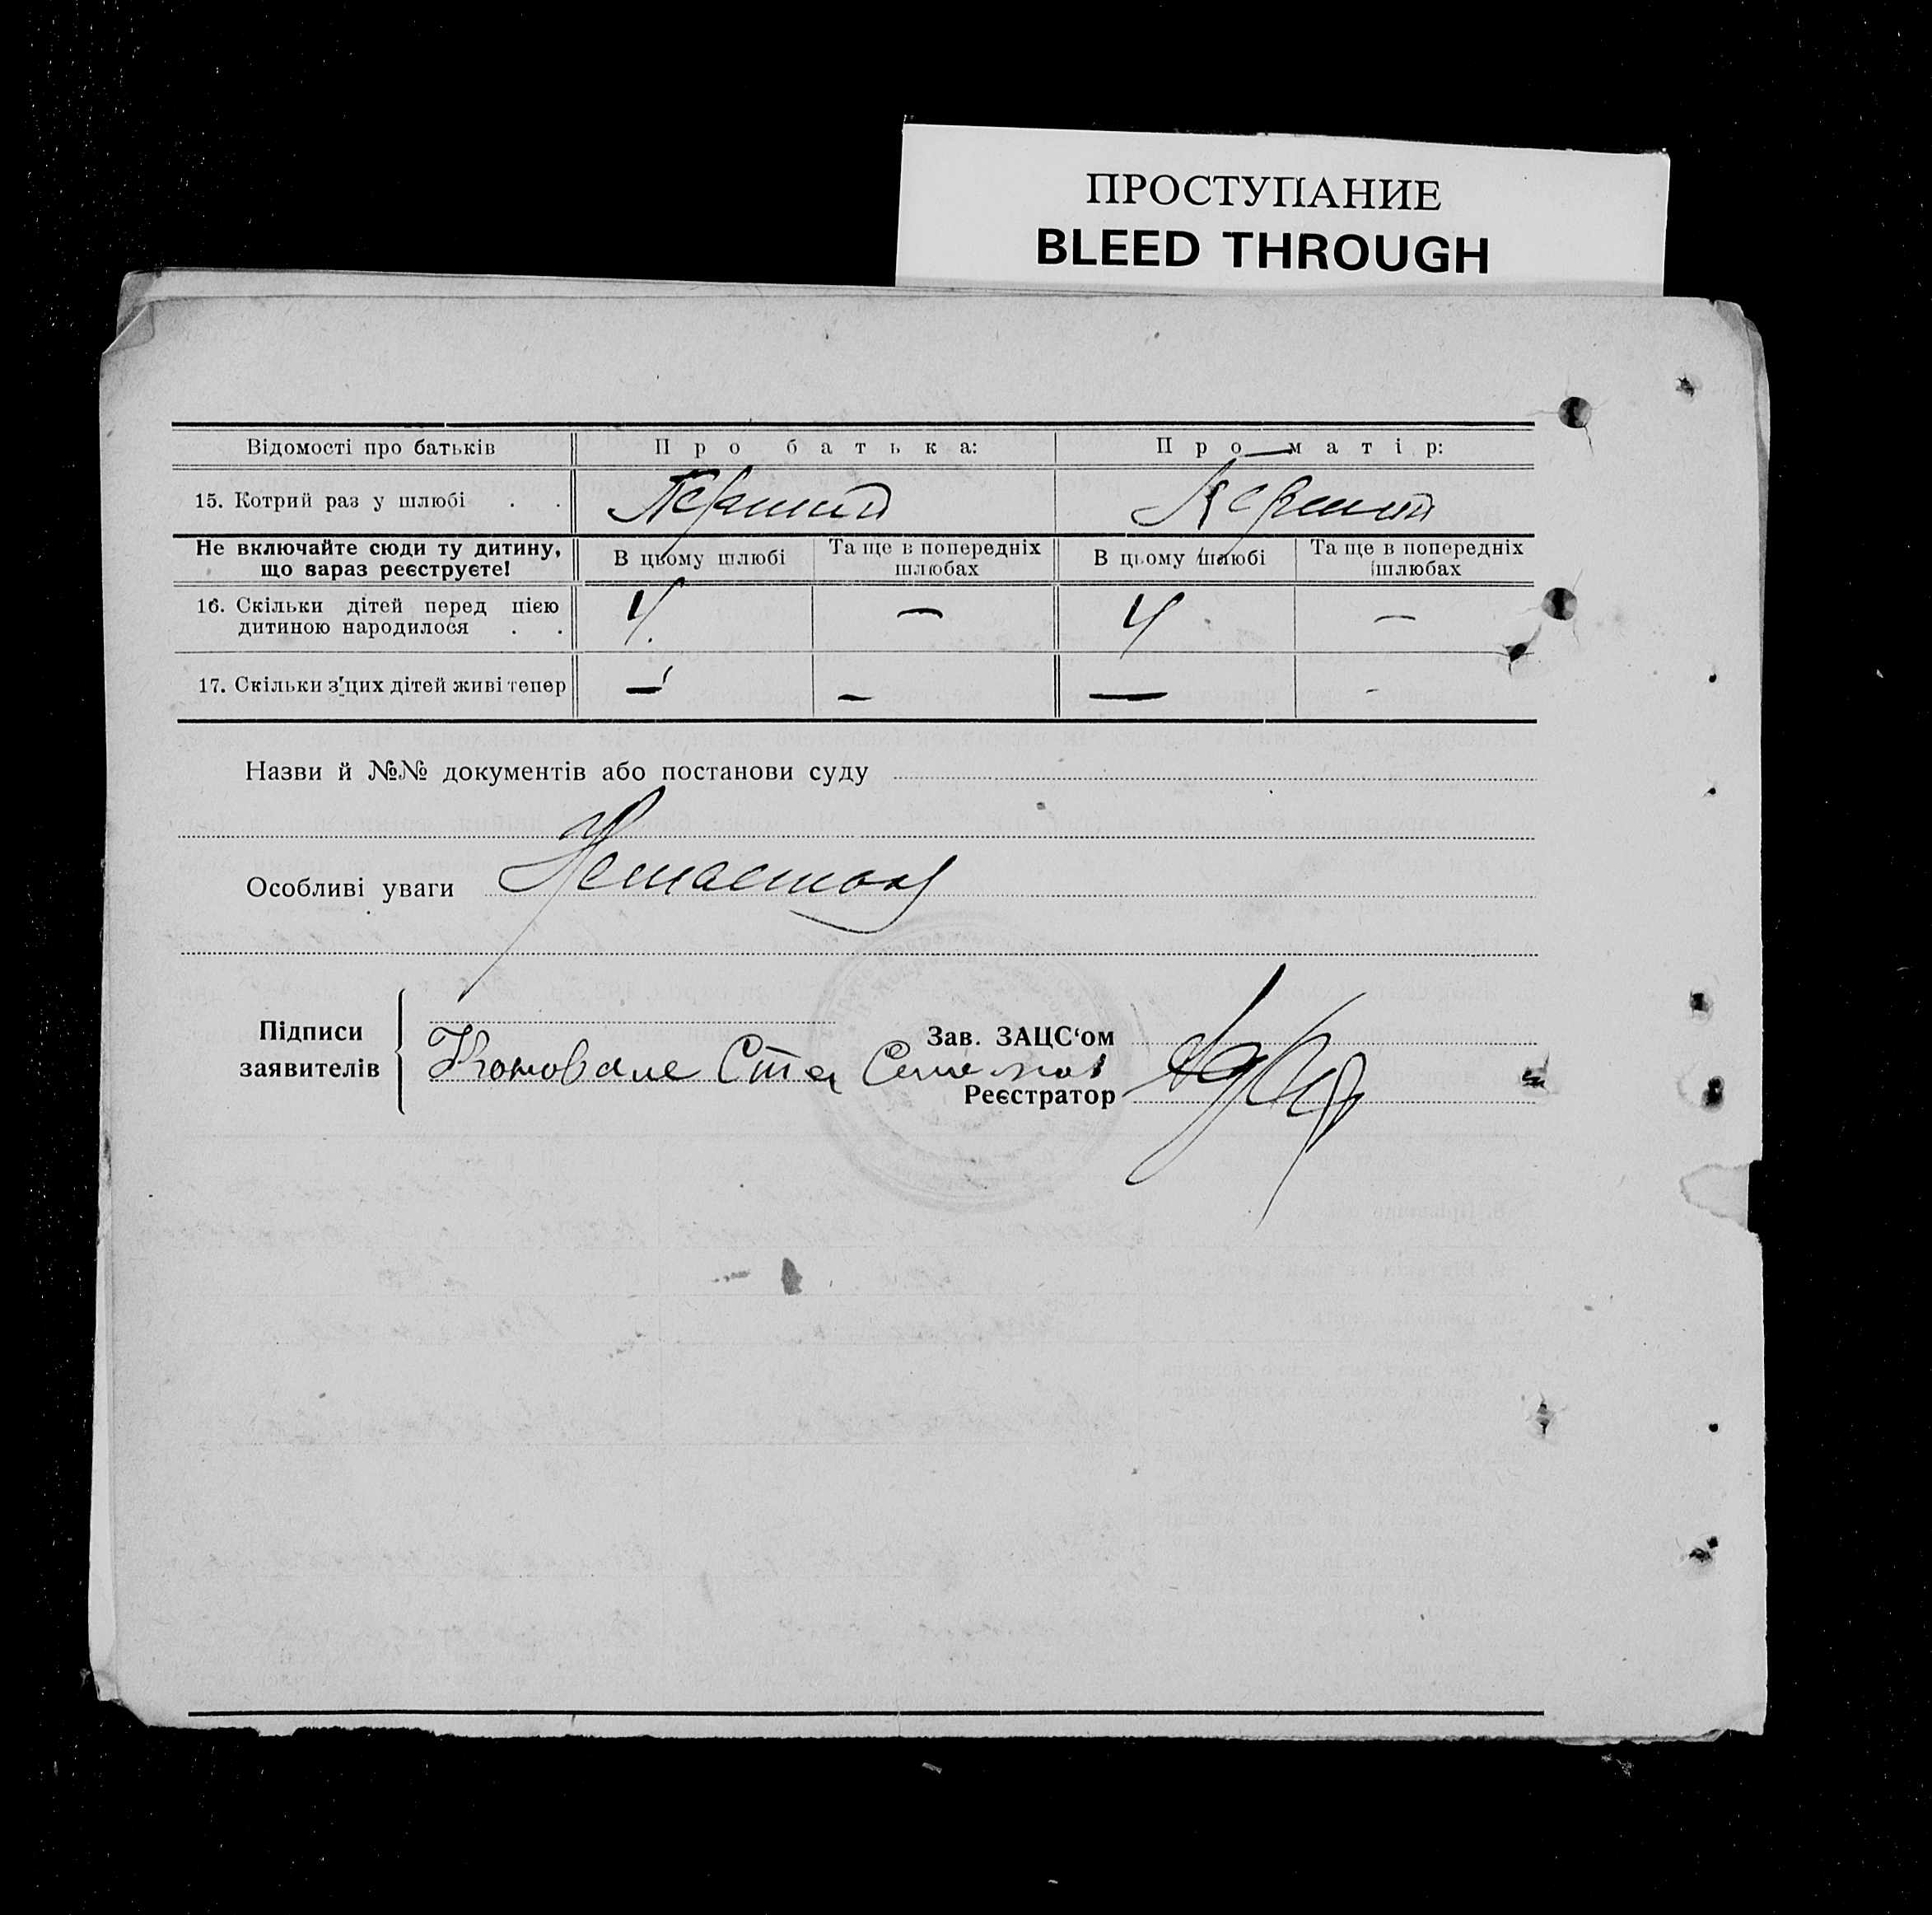 ПРОСТУПАНИЕ
BLEED THROUGH
Відомості про батьків Про батька: Про матір:
15. Котрий раз у шлюбі . . Перший Перший
Не включайте сюди ту дитину, що зараз реєструєте! В цьому шлюбі Та ще в попередніх шлюбах В цьому шлюбі Та ще в попередніх шлюбах
16. Скільки дітей перед цією дитиною народилося . . 4 — 4 —
17. Скільки з цих дітей живі тепер — — — -
Назви й №№ документів або постанови суду
Особливі уваги
Підписи заявителів
Зав. ЗАЦС‘ом
Реєстратор